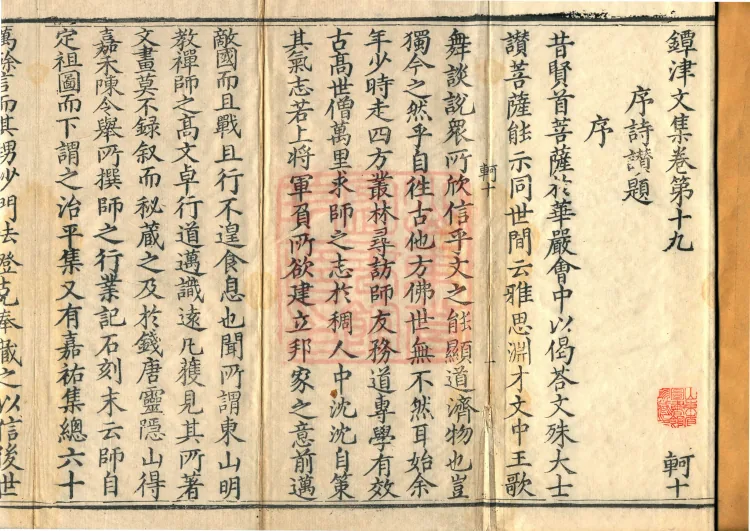 鐔津文集卷第十九
軻十
序詩讃題
序
昔賢首菩薩於華嚴會中以偈荅文殊大士
讃菩薩能示同世間云雅思淵才文中王歌
軻十
舞談說衆所欣信乎文之能顯道濟物也豈
獨今之然乎自徃古他方佛世無不然耳始余
年少時走四方叢林尋訪師友務道專學有效
古髙世僧萬里求師之志於稠人中沈沈自策
其氣志若上將軍負所欲建立邦家之意前邁
敵國而且戰且行不遑食息也聞所謂東山明
教禪師之髙文卓行道邁識遠凡獲見其所著
文畫莫不録叙而秘蔵之及於錢唐靈隱山得
嘉禾陳令舉所撰師之行業記石刻末云師自
定祖圖而下謂之治平集又有嘉祐集總六十
萬餘言而其甥沙門法燈克奉藏之以信後世